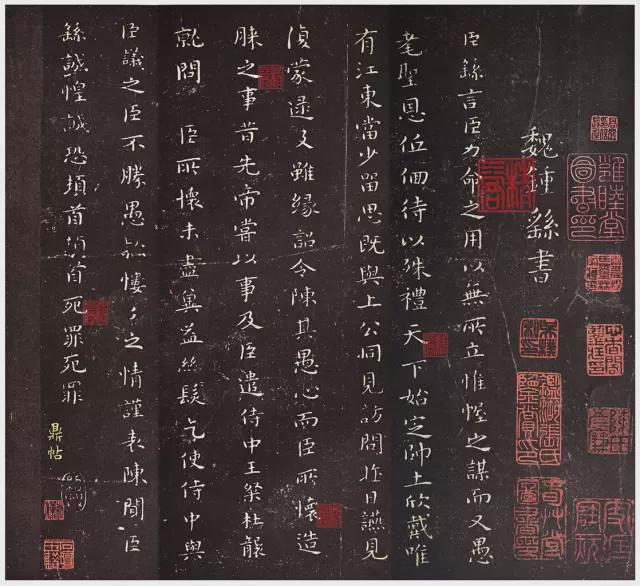 魏鍾繇書
臣繇言臣力命之用以無所立惟幄之謀而又愚
耄聖恩低佪待以殊禮天下始定帥土欣戴唯
有江東當少留思既與上公同見訪問昨日讌見
復蒙逮及雖緣詔令陳其愚心而臣所懷造
膝之事昔先帝嘗以事及臣遣侍中王粲杜襲
就問臣所懷未盡冀益絲髮乞使侍中與
臣議之臣不勝愚款慺慺之情謹表陳聞臣
繇誠惶誠恐頓首頓首死罪死罪
鼎帖